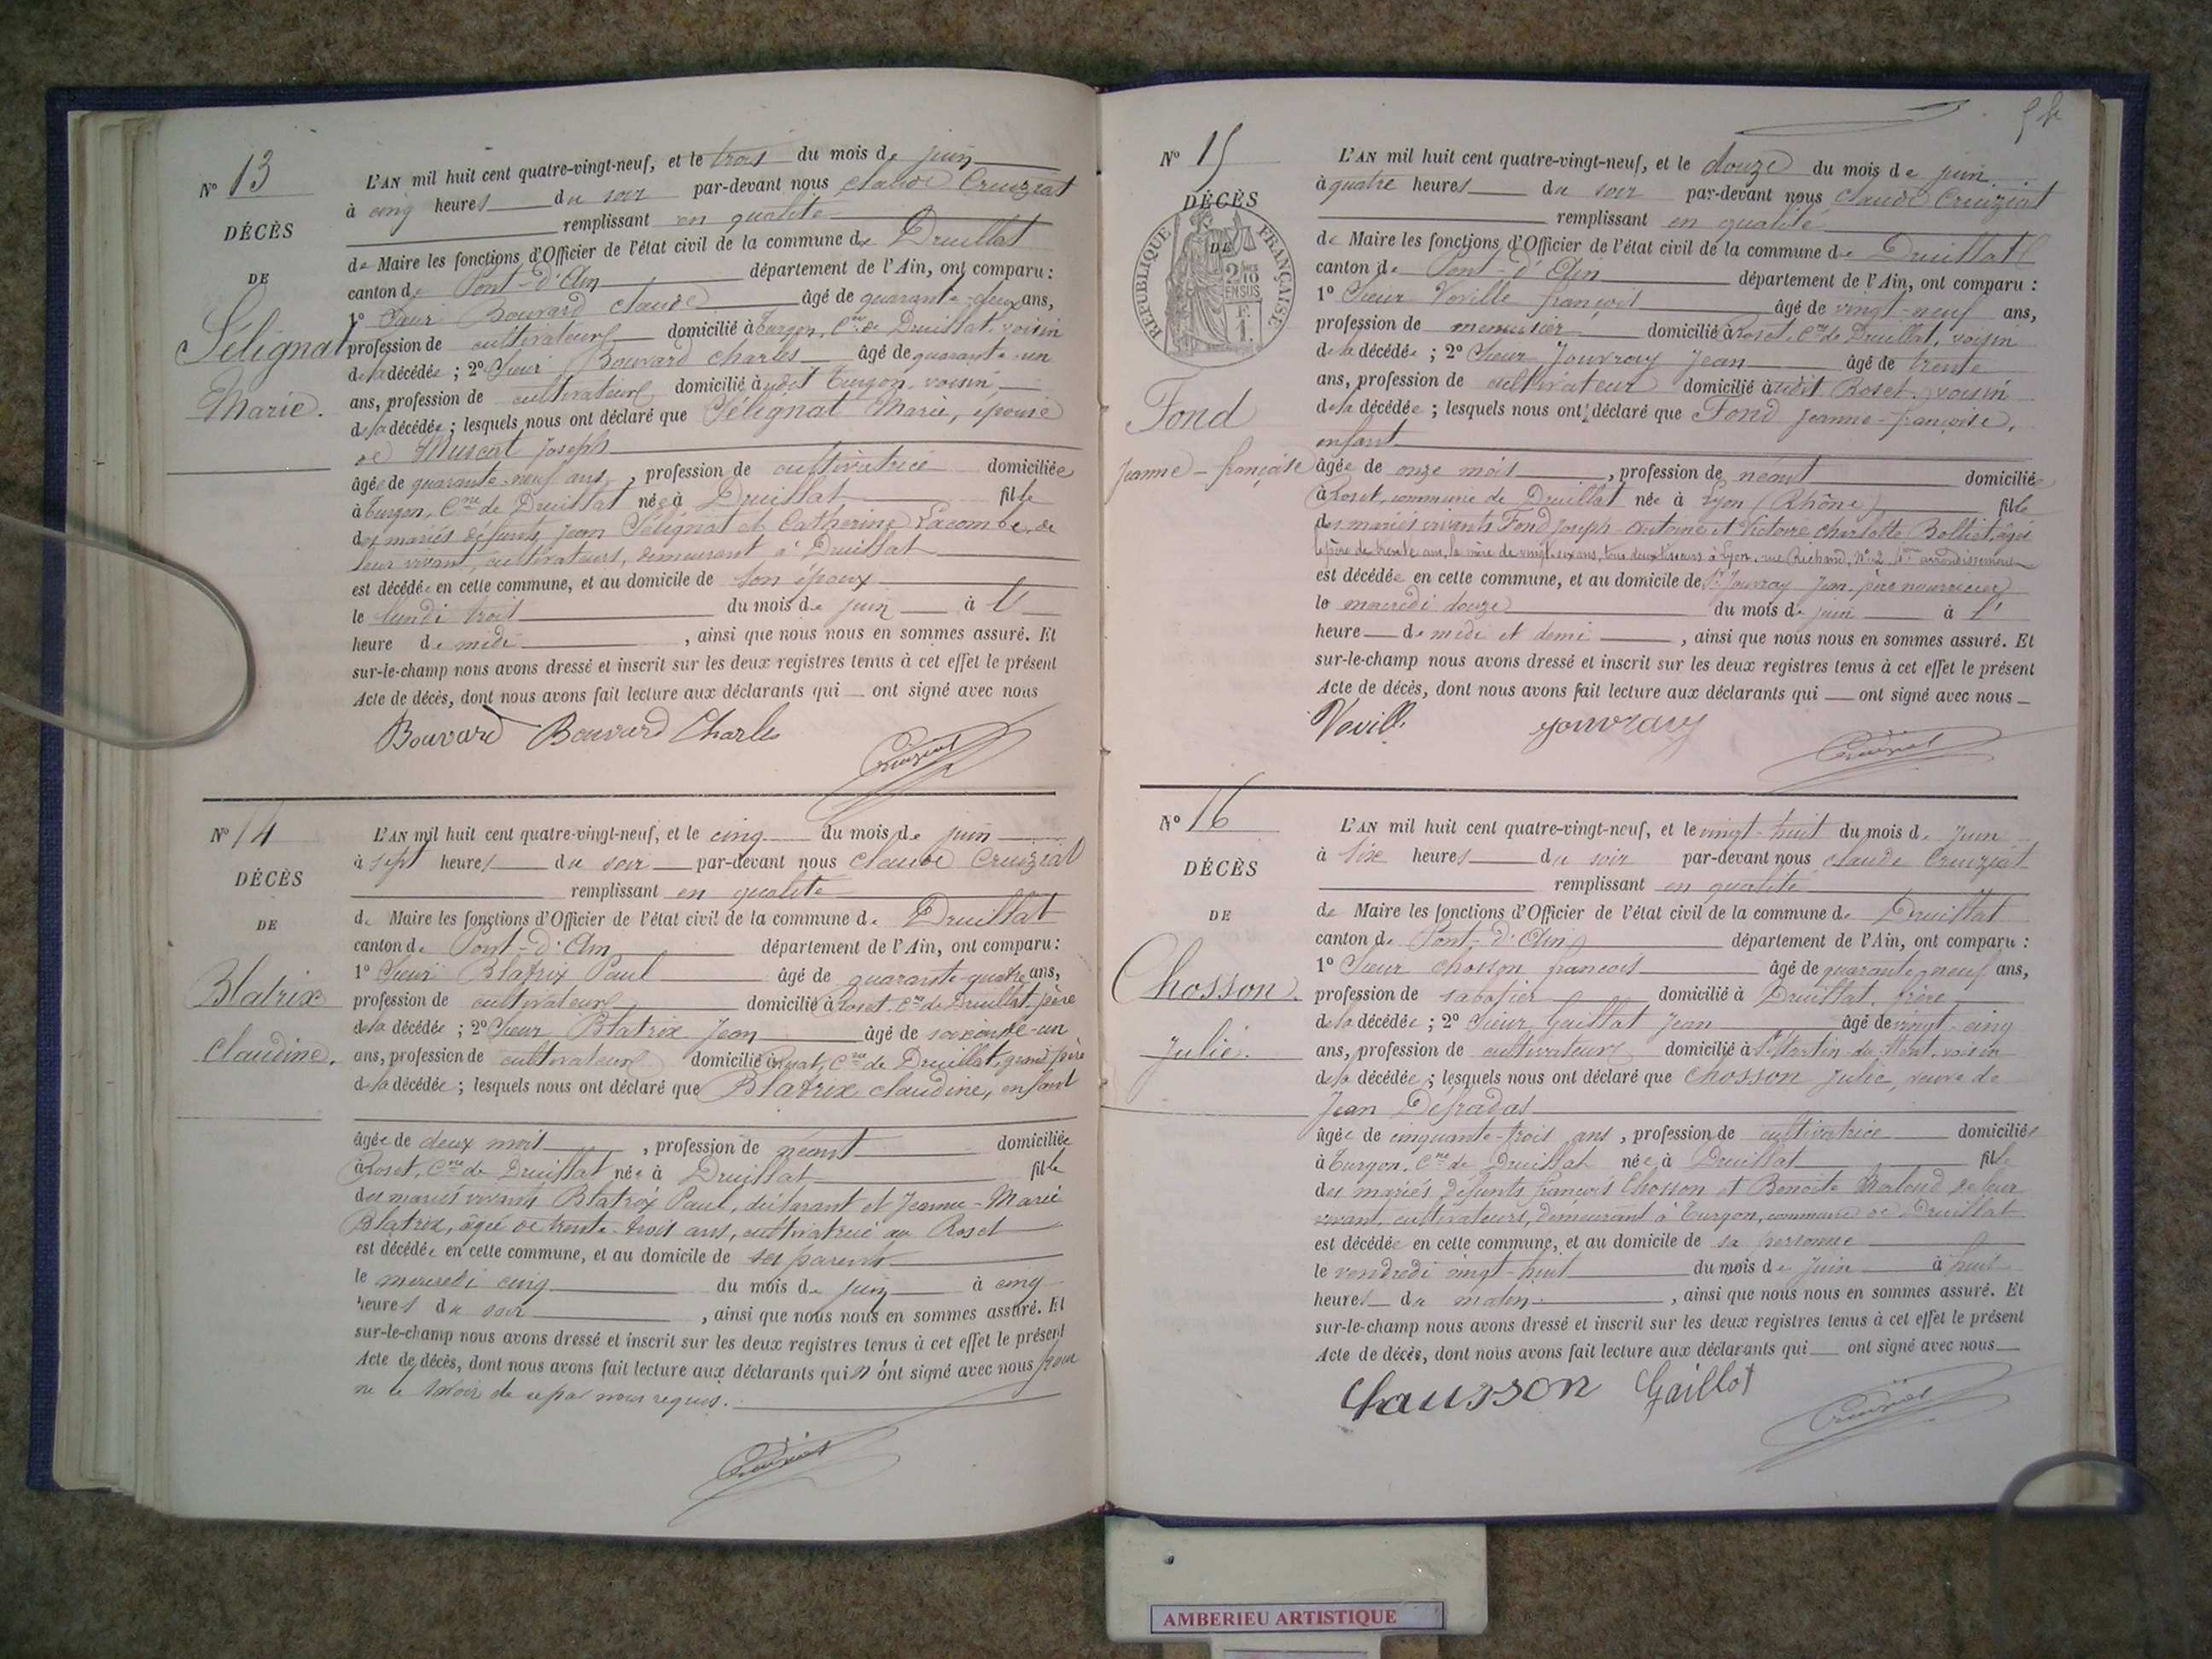 N° 13
DÉCÈS
DE
Sélignat
Marie.
L'AN mil huit cent quatre-vingt-neuf, et le trois du mois de juin
à cinq heures du soir par-devant nous Claude Cruiziat
remplissant en qualité
de Maire les fonctions d'Officier de l'état civil de la commune de Druillat
canton de Pont-d'Ain département de l'Ain, ont comparu :
1° Sieur Bouvard Claude âgé de quarante-deux ans,
profession de cultivateur domicilié à Turgon, Cne de Druillat, voisin
de la décédée ; 2° Sieur Bouvard Charles âgé de quarante-un
ans, profession de cultivateur domicilié à udit Turgon, voisin
de la décédée ; lesquels nous ont déclaré que Sélignat Marie, épouse
de Muscat Joseph
âgée de quarante-neuf ans, profession de cultivatrice domiciliée
à Turgon, Cne de Druillat née à Druillat fille
des mariés défunts Jean Sélignat et Catherine Lacombe, de
leur vivant, cultivateurs, demeurant à Druillat
est décédée en cette commune, et au domicile de son époux
le lundi trois du mois de juin à
heure de midi, ainsi que nous nous en sommes assuré. Et
sur-le-champ nous avons dressé et inscrit sur les deux registres tenus à cet effet le présent
Acte de décès, dont nous avons fait lecture aux déclarants qui ont signé avec nous
Bouvard Bouvard Charles
Cruiziat
N° 14
DÉCÈS
DE
Blatrix
Claudine.
L'AN mil huit cent quatre-vingt-neuf, et le cinq du mois de juin
à sept heures du soir par-devant nous Claude Cruiziat
remplissant en qualité
de Maire les fonctions d'Officier de l'état civil de la commune de Druillat
canton de Pont-d'Ain département de l'Ain, ont comparu :
1° Sieur Blatrix Paul âgé de quarante-quatre ans,
profession de cultivateur domicilié à Roset, Cne de Druillat, père
de la décédée ; 2° Sieur Blatrix Jean âgé de soixante-un
ans, profession de cultivateur domicilié à Cne de Druillat, grand père
de la décédée ; lesquels nous ont déclaré que Blatrix Claudine, enfant
âgée de deux mois, profession de néant domiciliée
à Roset, Cne de Druillat née à Druillat fille
des mariés vivants Blatrix Paul, déclarant et Jeanne-Marie
Blatrix, âgée de trente-trois ans, cultivatrice au Roset
est décédée en cette commune, et au domicile de ses parents
le mercredi cinq du mois de juin à cinq
heures du soir, ainsi que nous nous en sommes assuré. Et
sur-le-champ nous avons dressé et inscrit sur les deux registres tenus à cet effet le présent
Acte de décès, dont nous avons fait lecture aux déclarants qui n'ont signé avec nous pour
ne le savoir de ce par nous requis.
Cruiziat
N° 15
DÉCÈS
DE
RÉPUBLIQUE FRANÇAISE
2/10 EN SUS
Fond
Jeanne-françoise
L'AN mil huit cent quatre-vingt-neuf, et le douze du mois de juin
à quatre heures du soir par-devant nous Claude Cruiziat
remplissant en qualité
de Maire les fonctions d'Officier de l'état civil de la commune de Druillat
canton de Pont-d'Ain département de l'Ain, ont comparu :
1° Sieur Voville françois âgé de vingt-neuf ans,
profession de menuisier domicilié à Roset, Cne de Druillat, voisin
de la décédée ; 2° Sieur Jouvray Jean âgé de trente
ans, profession de cultivateur domicilié à udit Roset, voisin
de la décédée ; lesquels nous ont déclaré que Fond Jeanne-françoise,
enfant
âgée de onze mois, profession de néant domiciliée
à Roset, commune de Druillat née à Lyon (Rhône) fille
des mariés vivants Fond Joseph Antoine et Victoire Charlotte Bolliet, âgés
le père de trente ans, la mère de vingt-six ans, tous deux tisseurs à Lyon, rue Richard, N° 2, arrondissement
est décédée en cette commune, et au domicile de Sr Jouvray Jean, père nourricier
le mercredi douze du mois de juin à l'
heure de midi et demi, ainsi que nous nous en sommes assuré. Et
sur-le-champ nous avons dressé et inscrit sur les deux registres tenus à cet effet le présent
Acte de décès, dont nous avons fait lecture aux déclarants qui ont signé avec nous
Voville Jouvray
Cruiziat
N° 16
DÉCÈS
DE
Chosson
Julie.
L'AN mil huit cent quatre-vingt-neuf, et le vingt-huit du mois de juin
à six heures du soir par-devant nous Claude Cruiziat
remplissant en qualité
de Maire les fonctions d'Officier de l'état civil de la commune de Druillat
canton de Pont-d'Ain département de l'Ain, ont comparu :
1° Sieur Chosson françois âgé de quarante-neuf ans,
profession de sabotier domicilié à Druillat, frère
de la décédée ; 2° Sieur Gaillat Jean âgé de vingt-cinq
ans, profession de cultivateur domicilié à St Martin du Mont, voisin
de la décédée ; lesquels nous ont déclaré que Chosson Julie, veuve de
Jean Défradas
âgée de cinquante-trois ans, profession de cultivatrice domiciliée
à Turgon, Cne de Druillat née à Druillat fille
des mariés défunts françois Chosson et Benoite de leur
vivant, cultivateurs, demeurant à Turgon, commune de Druillat
est décédée en cette commune, et au domicile de sa personne
le vendredi vingt-huit du mois de juin à huit
heures du matin, ainsi que nous nous en sommes assuré. Et
sur-le-champ nous avons dressé et inscrit sur les deux registres tenus à cet effet le présent
Acte de décès, dont nous avons fait lecture aux déclarants qui ont signé avec nous
Chausson Gaillot
Cruiziat
AMBERIEU ARTISTIQUE